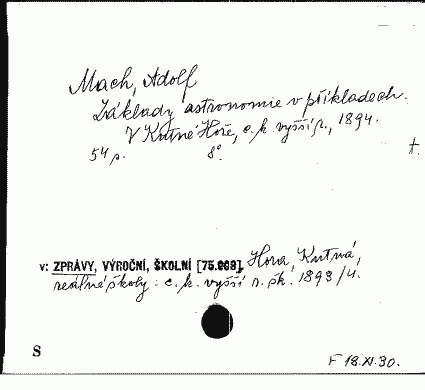 Mach, Adolf
Základy astronomie v příkladech.
V Kutné Hoře, c. k. vyšší r., 1894.
54 p. 8°. t.
v: ZPRÁVY, VÝROČNÍ, ŠKOLNÍ [75.668], Hora, Kutná,
reálné školy: c. k. vyšší r. šk. 1893/4.
S
F 18.XI.30.